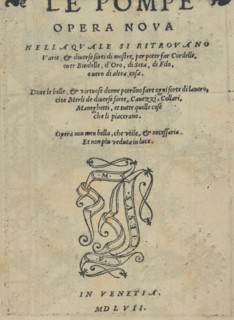 LE POMPE
OPERA NOVA
NELLA QVALE SI RITROVANO
Varie, & diuerse sorti di mostre, per poter far Cordelle,
ouer Bindelle, d'Oro, di Seta, di Filo,
ouero di altra cosa.
Doue le belle, & virtuose donne potranno fare ogni sorte di lauoro,
cioè Merli de diuerse sorte, Cauezzi, Collari,
Maneghetti, et tutte quelle cose
che li piaceranno.
Opera non men bella, che vtile, & necessaria.
Et non piu veduta in luce.
IN VENETIA.
MDLVII.